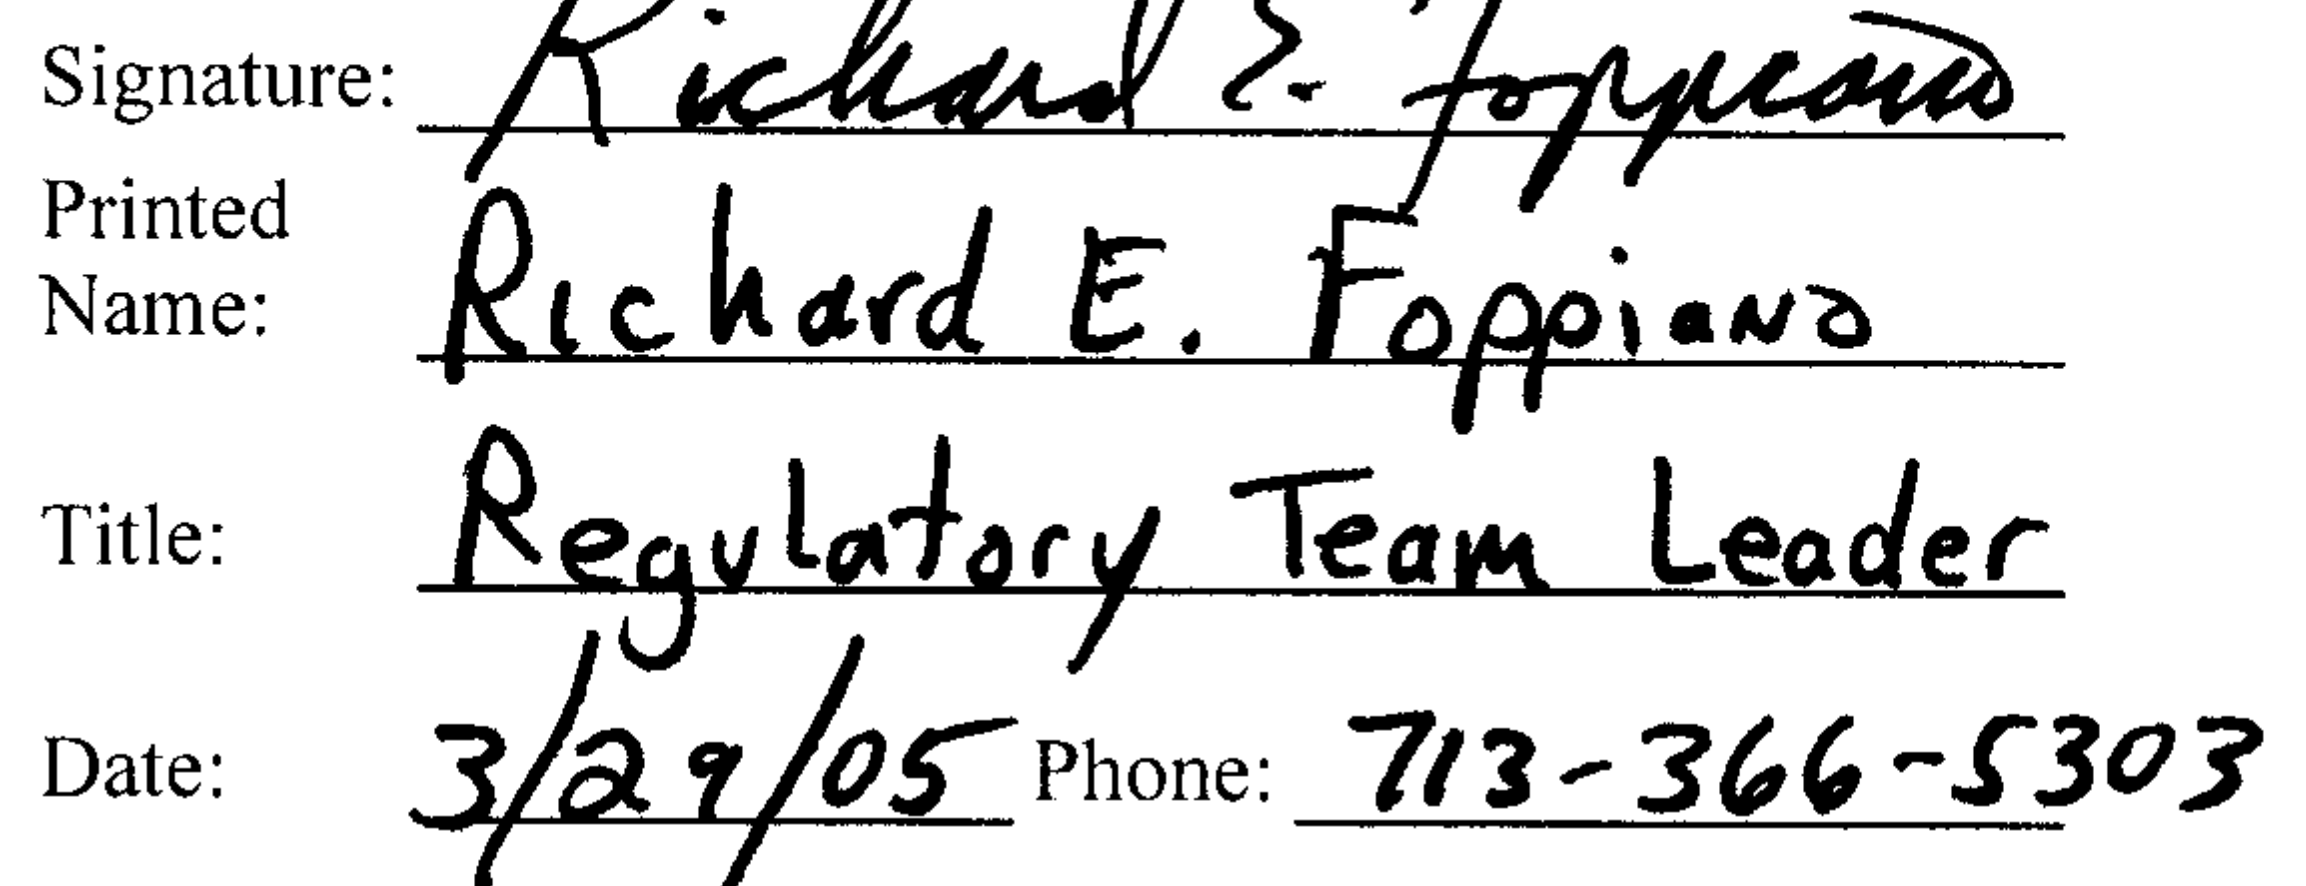 Signature: Richard E. Foppiano
Printed
Name: Richard E. Foppiano
Title: Regulatory Team Leader
Date: 3/29/05 Phone: 713-366-5303